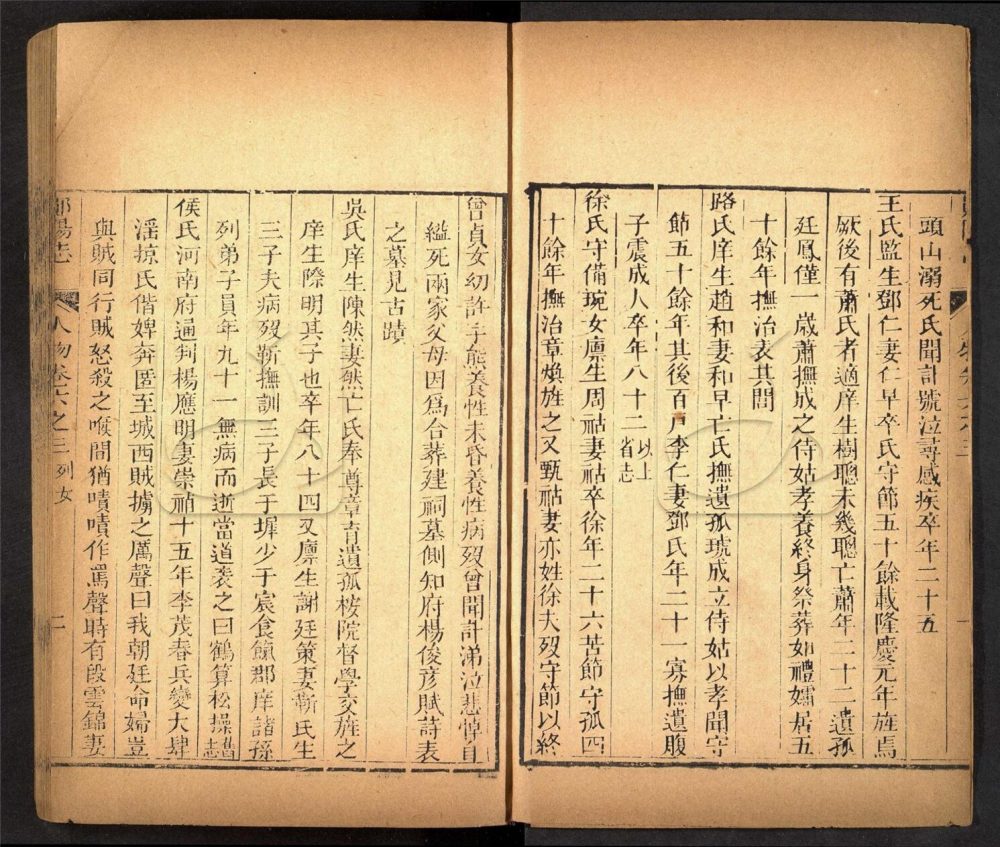 頭山溺死氏聞訃號泣尋感疾卒年二十五
王氏監生鄧仁妻仁早卒氏守節五十餘載隆慶元年旌焉
厥後有蕭氏者適庠生樹聰未幾聰亡蕭年二十二遺孤
廷鳳僅一歲蕭撫成之侍姑孝養終身祭葬如禮孀居五
十餘年撫治表其閭
路氏庠生趙和妻和早亡氏撫遺孤琥成立侍姑以孝聞守
節五十餘年其後百戶李仁妻鄧氏年二十一寡撫遺腹
子震成人卒年八十二以上省志
徐氏守備琬女廪生周祜妻祜卒徐年二十六苦節守孤四
十餘年撫治章煥旌之又甄祜妻亦姓徐夫歿守節以終
曾貞女幼許字熊養性未昏養性病歿曾聞訃涕泣悲悼自
縊死兩家父母因爲合葬建祠墓側知府楊俊彥賦詩表
之墓見古蹟
吳氏庠生陳然妻然亡氏奉尊章育遺孤按院督學交旌之
庠生際明其子也卒年八十四又廪生謝廷策妻靳氏生
三子夫病歿靳撫訓三子長于墀少于宸食餼郡庠諸孫
列弟子員年九十一無病而逝當道表之曰鶴算松操舊志
侯氏河南府通判楊應明妻崇禎十五年李茂春兵變大肆
淫掠氏偕婢奔匿至城西賊擄之厲聲曰我朝廷命婦豈
與賊同行賊怒殺之喉間猶嘖嘖作罵聲時有段雲錦妻
鄖陽志 人物卷六之三 列女 二